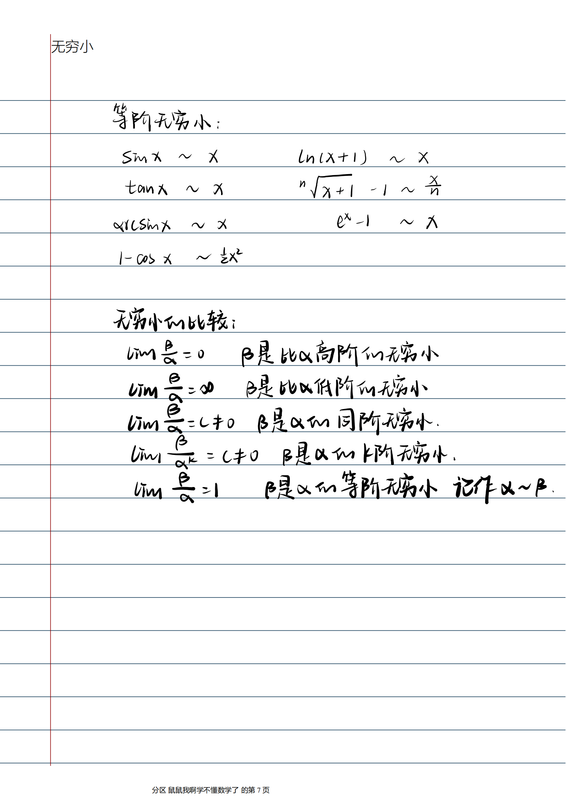 无穷小
等阶无穷小:
sinx ~ x ln(x+1) ~ x
tanx ~ x ⁿ√(x+1) -1 ~ x/n
arcsinx ~ x eˣ-1 ~ x
1-cosx ~ ½x²
无穷小的比较:
lim β/α = 0 β是比α高阶的无穷小
lim β/α = ∞ β是比α低阶的无穷小
lim β/α = C≠0 β是α的同阶无穷小.
lim β/αᵏ = C≠0 β是α的k阶无穷小.
lim β/α = 1 β是α的等阶无穷小 记作α~β.
分区 鼠鼠我啊学不懂数学了 的第 7 页